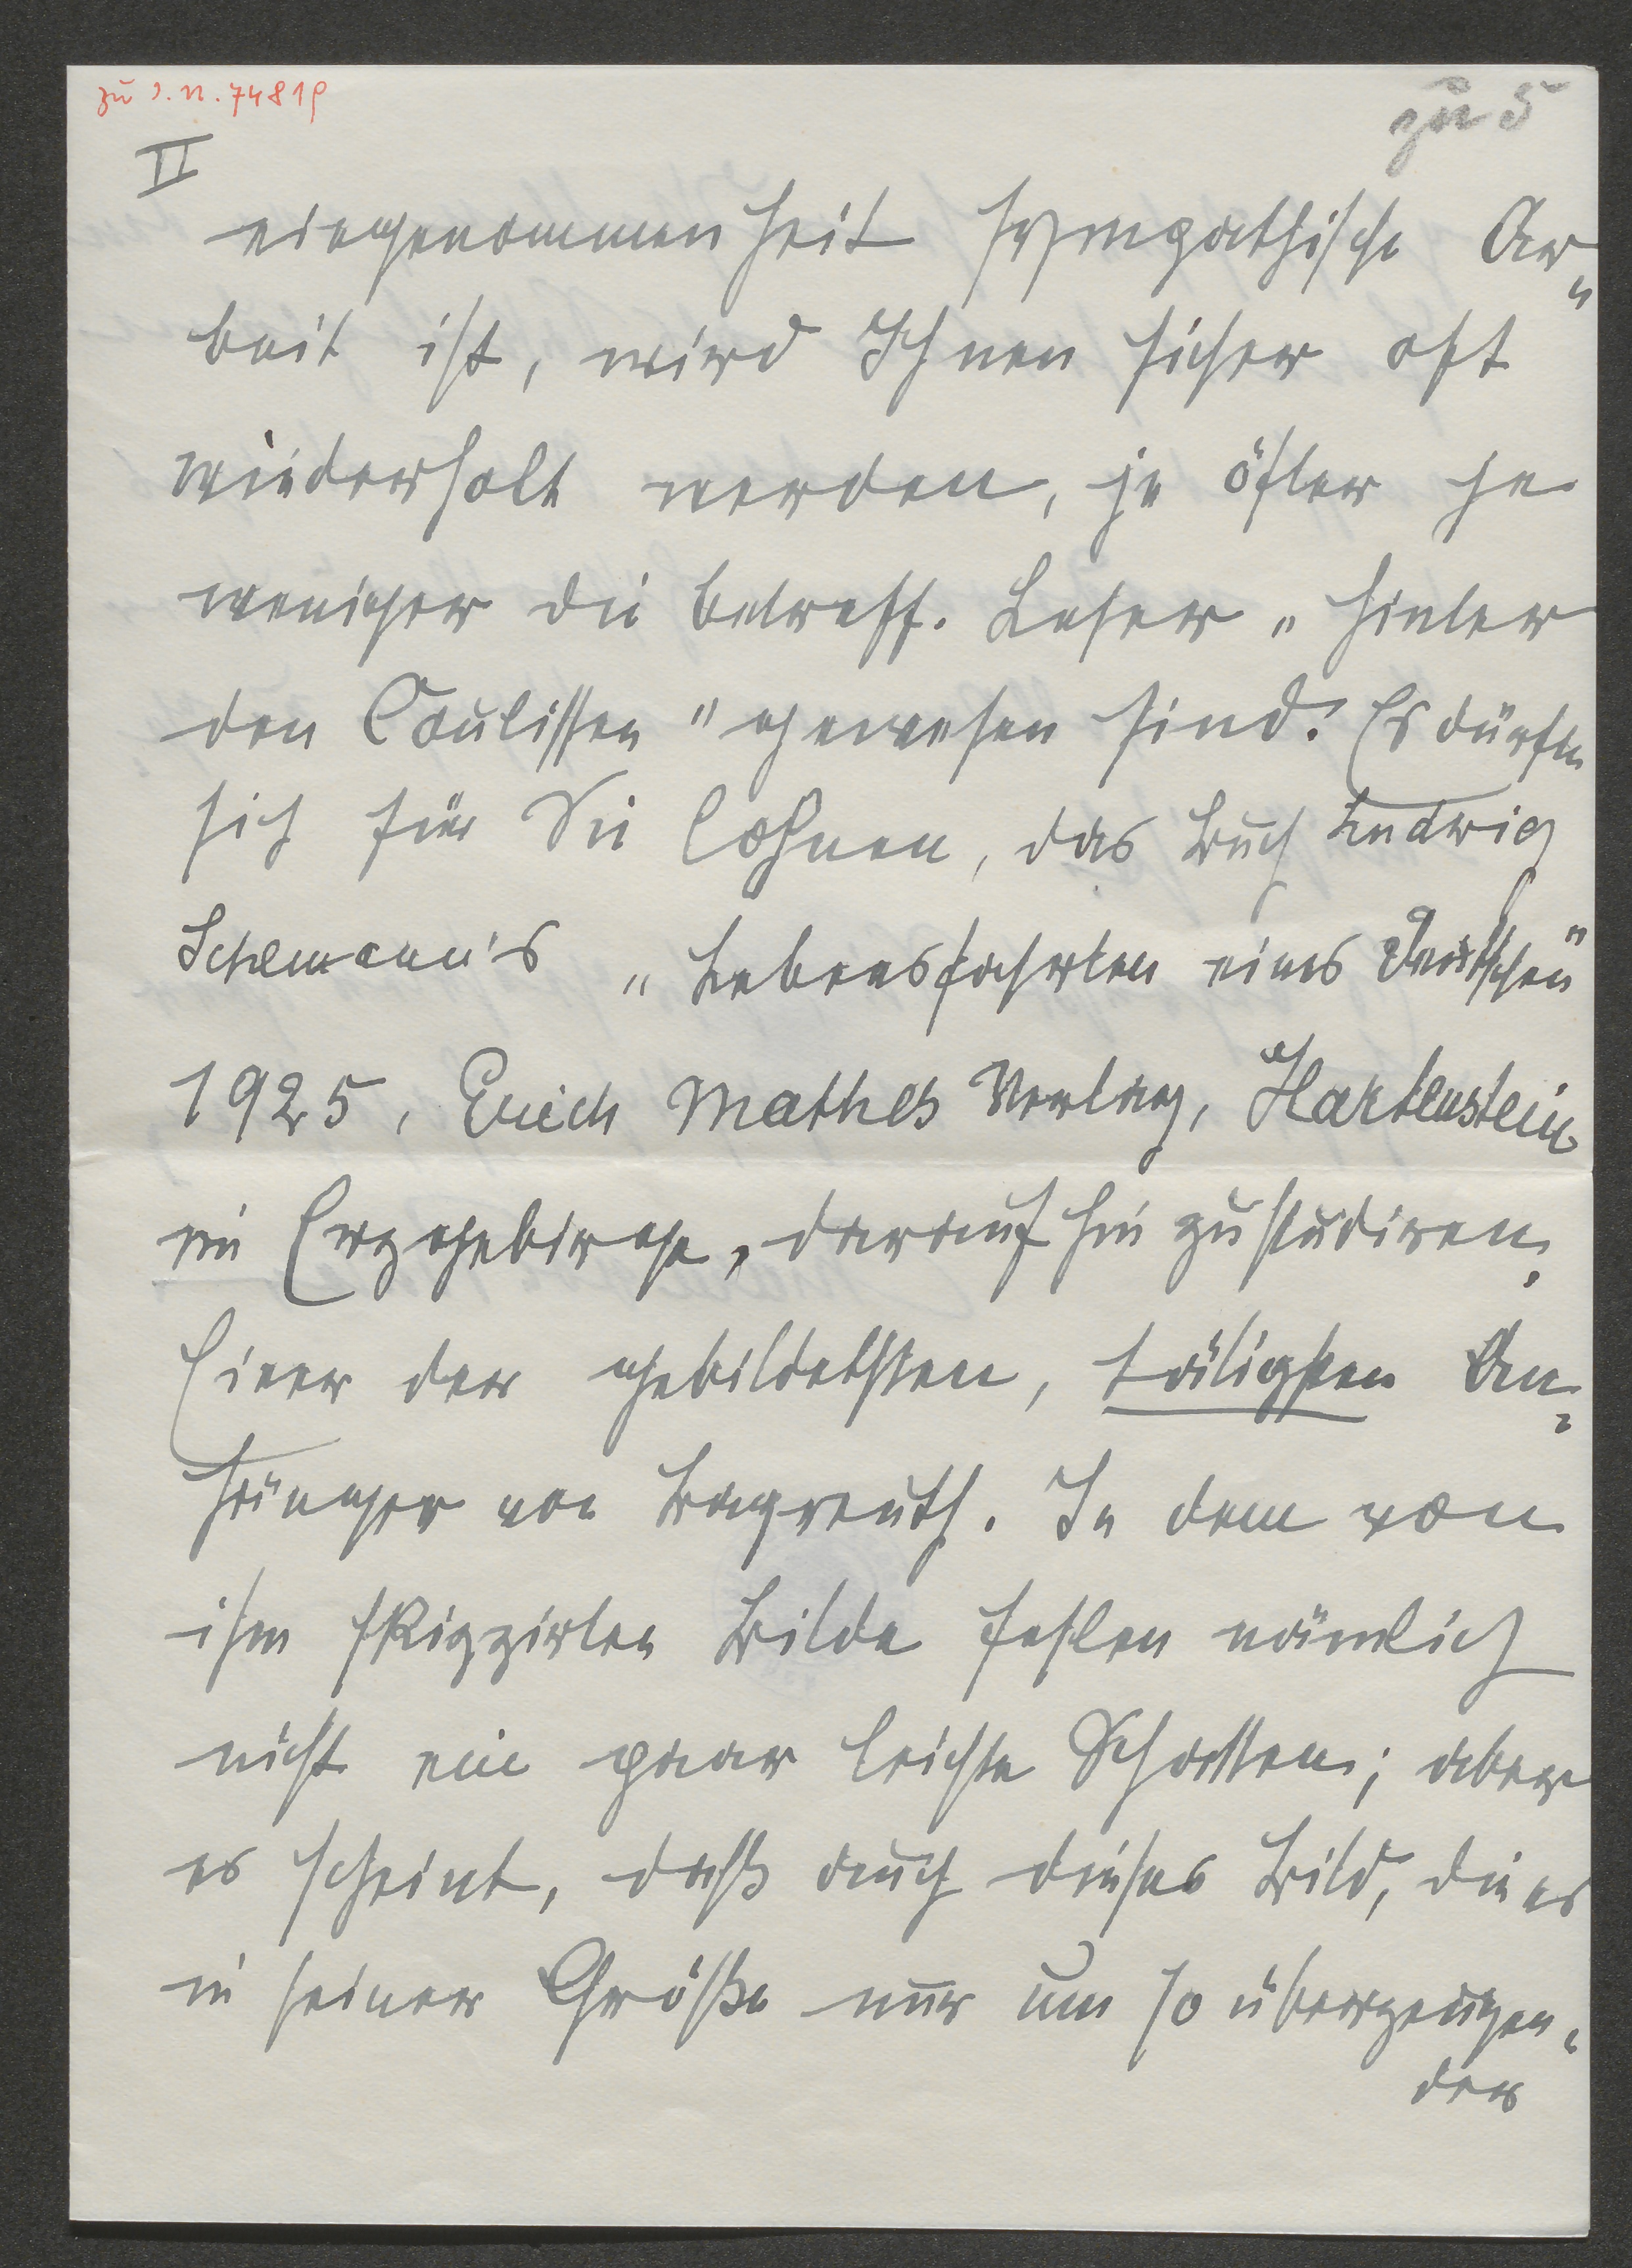 zu I. N. 74819
zu 5
II
eingenommenheit sympathische Ar„
beit ist, wird Ihnen sicher oft
wiederholt werden, je öfter je
weniger die betreff. Leser „hinter
den Coulissen" gewesen sind. Es dürfte
sich für Sie lohnen, das Buch Ludwig
Schemann's „Lebensfahrten eines Deutschen"
1925, Erich Mathes Verlag, Hartenstein
im Erzgebirge, daraufhin zu studiren.
Einer der gebildetsten, tätigsten An„
hänger von Bayreuth. In dem von
ihm skizzirten Bilde fehlen nämlich
nicht ein paar leichte Schatten; aber
es scheint, daß auch dieses Bild, die es
in seiner Größe nur um so überzeugen„
der